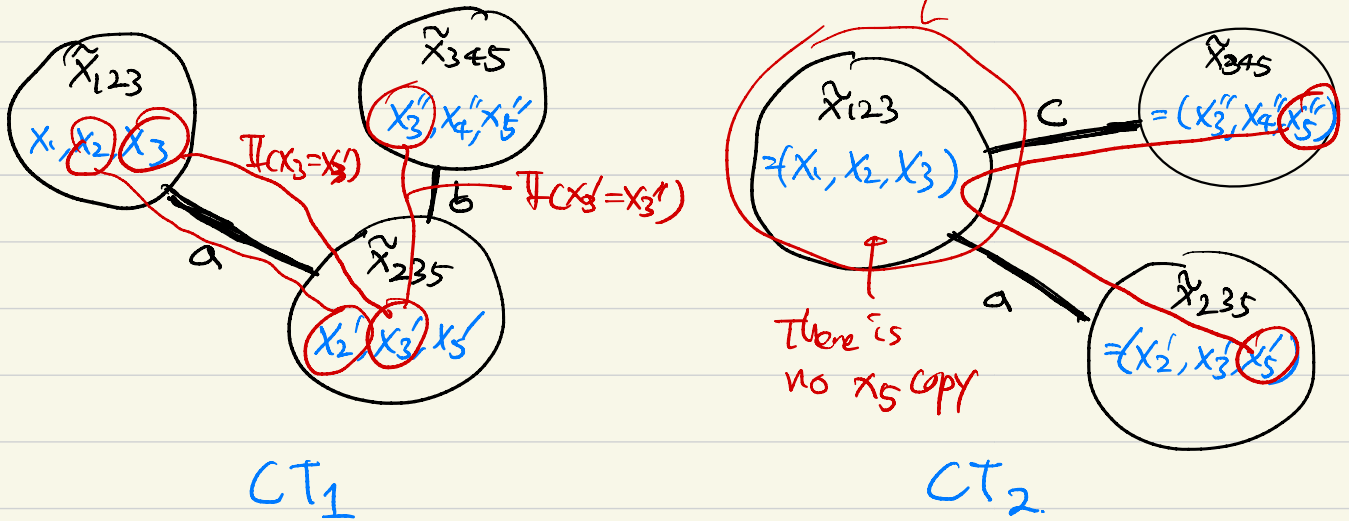 X̃₁₂₃
X₁, X₂, X₃
X̃₃₄₅
X₃'', X₄'', X₅''
𝕀(X₃=X₃')
𝕀(X₃'=X₃'')
a
b
X̃₂₃₅
X₂', X₃', X₅'
CT₁
X̃₁₂₃
=(X₁, X₂, X₃)
C
X̃₃₄₅
=(X₃'', X₄'', X₅'')
a
X̃₂₃₅
=(X₂', X₃', X₅')
There is
no X₅ copy
CT₂.